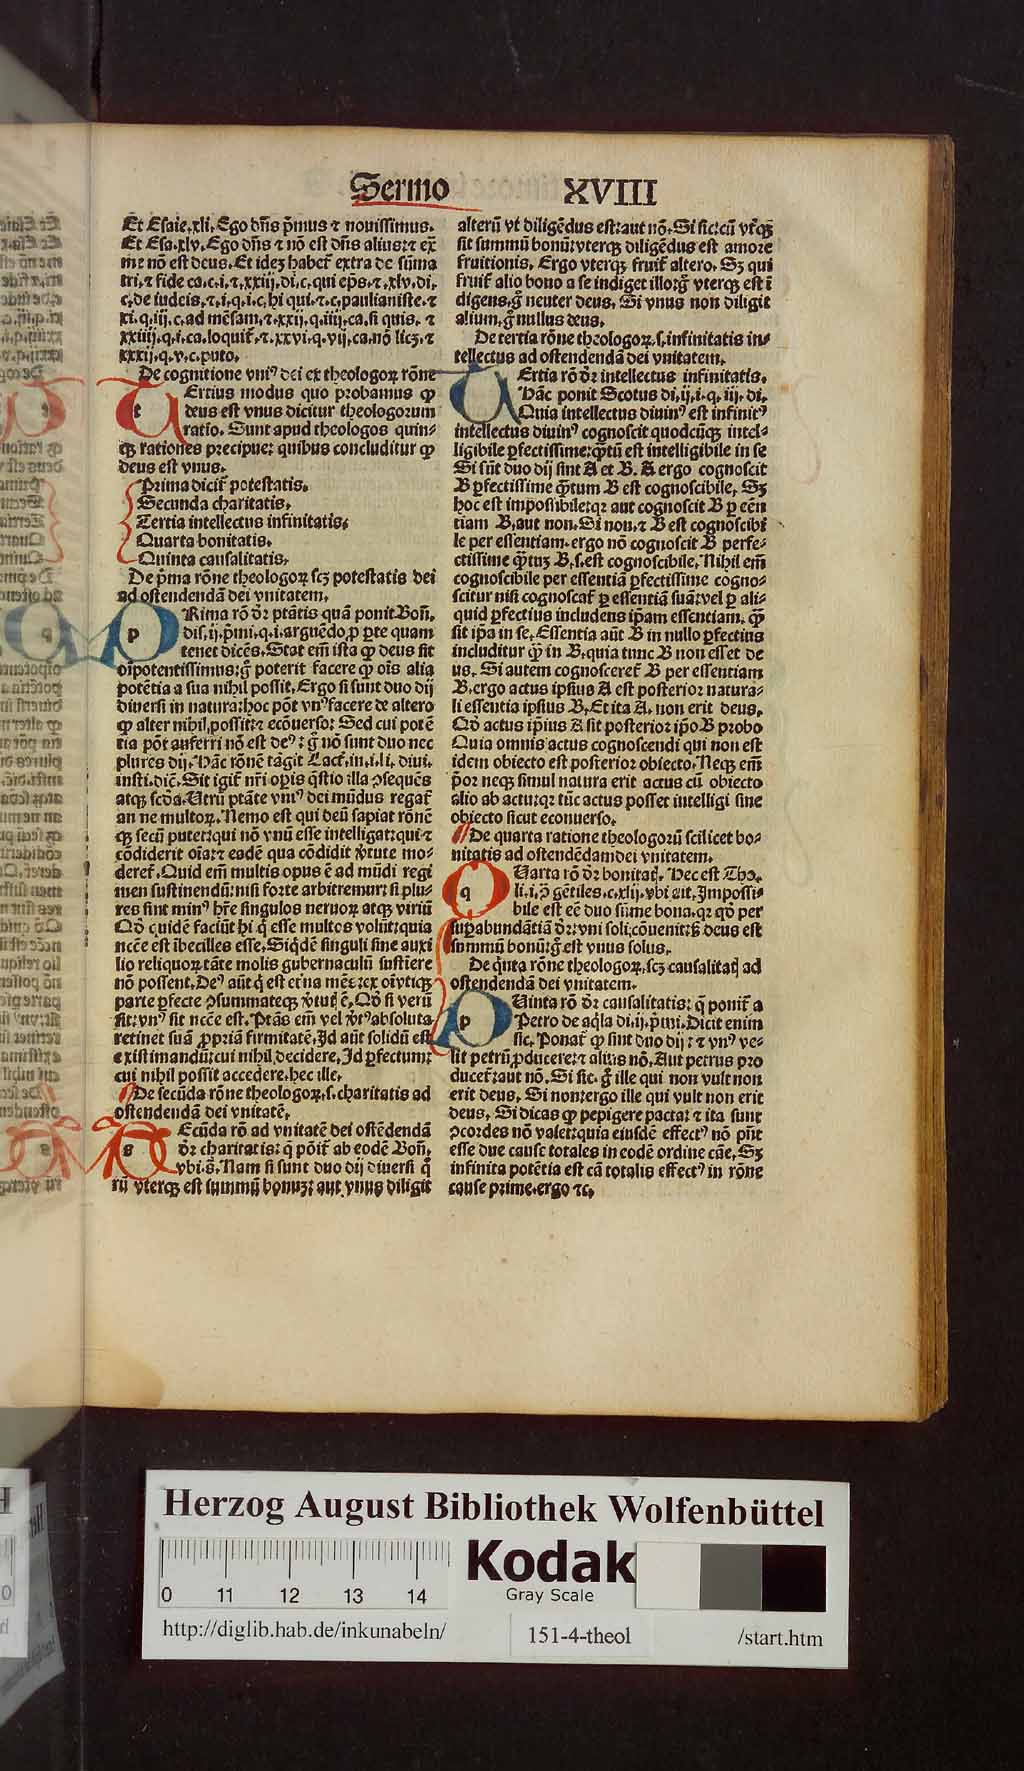 Sermo XVIII
Et Esaie.xli. Ego dn̄s p̄mus ⁊ nouissimus.
Et Esa.xlv. Ego dn̄s ⁊ nō est dn̄s alius: ⁊ ex̄
me nō est deus. Et idez habet᷑ extra de sūma
tri. ⁊ fide ca.c.i. ⁊.xxiij.di.c.qui ep̄s. ⁊.xlv.di.
c.de iudeis. ⁊.i.q.i.c.hi qui. ⁊.c.paulianiste. ⁊
xi.q.iij.c.ad mēsam. ⁊.xxij.q.iiij.ca.si quis. ⁊
xxiiij.q.i.ca.loquit᷑. ⁊.xxvi.q.vij.ca.nō licz. ⁊
xxxij.q.v.c.puto.
De cognitione vniꝰ dei ex theologoꝝ rōne
Tertius modus quo probamus ꝙ
deus est vnus dicitur theologorum
ratio. Sunt apud theologos quin⸗
qꝫ rationes precipue: quibus concluditur ꝙ
deus est vnus.
Prima dicit᷑ potestatis.
Secunda charitatis.
Tertia intellectus infinitatis.
Quarta bonitatis.
Quinta causalitatis.
De p̄ma rōne theologoꝝ scꝫ potestatis dei
ad ostendendā dei vnitatem.
PRima rō d̄r ptātis quā ponit Boñ.
dis.ij.p̄mi.q.i.arguēdo ꝓ ꝑte quam
tenet dicēs. Stat em̄ ista ꝙ deus sit
oīpotentissimus: g̊ poterit facere ꝙ oīs alia
potētia a sua nihil possit. Ergo si sunt duo dij
diuersi in natura: hoc pōt vnꝰ facere de altero
ꝙ alter nihil possit: ⁊ ecōuerso: Sed cui potē
tia pōt auferri nō est deꝰ: g̊ nō sunt duo nec
plures dij. Hāc rōnē tāgit Lact̄.in.i.li.diui.
insti.dicē. Sit igit᷑ nr̄i oꝑis q̄stio illa ꝯsequēs
atqꝫ scd̄a. Utrū ptāte vniꝰ dei mūdus regat᷑
an ne multoꝝ. Nemo est qui deū sapiat rōnē
qꝫ secū putet: qui nō vnū esse intelligat: qui ⁊
cōdiderit oīa: ⁊ eadē qua cōdidit v̄tute mo⸗
deret᷑. Quid em̄ multis opus ē ad mūdi regi
men sustinendū: nisi forte arbitremur: si plu⸗
res sint minꝰ hr̄e singulos neruoꝝ atqꝫ viriū
Qd̄ quidē faciūt hi q̄ esse multos volūt: quia
nc̄ce est ībecilles esse. Siqͥdē singuli sine auxi
lio reliquoꝝ tāte molis gubernaculū sustiere
nō possent. Deꝰ aūt q̄ est et̄na mēs: ex oīvtiqꝫ
parte ꝑfecte ꝯsummateqꝫ v̄tutꝭ ē. Qd̄ si verū
sit: vnꝰ sit nc̄ce est. Ptās em̄ vel v̄tꝰ absoluta
retinet suā ꝓpriā firmitatē. Id aūt solidū est
existimandū: cui nihil decidere. Id ꝑfectum:
cui nihil possit accedere. hec ille.
De secūda rōne theologoꝝ.s.charitatis ad
ostendendā dei vnitatē.
SEcūda rō ad vnitatē dei ostēdendā
d̄r charitatis: q̄ pōit᷑ ab eodē Boñ.
vbi.s̄. Nam si sunt duo dij diuersi q̄
rū vterqꝫ est summū bonuꝫ: aut vnus diligit
alterū vt diligēdus est: aut nō. Si sic: cū vt᷑qꝫ
sit summū bonū: vterqꝫ diligēdus est amore
fruitionis. Ergo vterqꝫ fruit᷑ altero. Sꝫ qui
fruit᷑ alio bono a se indiget illo: g̊ vterqꝫ est ī
digens. g̊ neuter deus. Si vnus non diligit
alium. g̊ nullus deus.
De tertia rōne theologoꝝ.s.infinitatis in⸗
tellectus ad ostendendā dei vnitatem.
TErtia rō d̄r intellectus infinitatis.
Hāc ponit Scotus di.ij.i.q.iij.di.
Quia intellectus diuinꝰ est infinitꝰ
intellectus diuinꝰ cognoscit quodcūqꝫ intel⸗
ligibile ꝑfectissime: qͣꝫtū est intelligibile in se
Si sūt duo dij sint A et B. A ergo cognoscit
B ꝑfectissime qͣꝫtum B est cognoscibile. Sꝫ
hoc est impossibile: qꝛ aut cognoscit B ꝑ eēn
tiam B. aut non. Si non. ⁊ B est cognoscibi
le per essentiam. ergo nō cognoscit B perfe⸗
ctissime qͣꝫtuꝫ B.s.est cognoscibile. Nihil em̄
cognoscibile per essentiā ꝑfectissime cogno⸗
scitur nisi cognoscat᷑ ꝑ essentiā suā: vel ꝑ ali⸗
quid ꝑfectius includens ip̄am essentiam. qͣꝫ
sit ip̄a in se. Essentia aūt B in nullo ꝑfectius
includitur qͣꝫ in B. quia tunc B non esset de
us. Si autem cognosceret᷑ B per essentiam
B. ergo actus ipsius A est posterior natura⸗
li essentia ipsius B. Et ita A. non erit deus.
Qd̄ actus ip̄ius A sit posterior ip̄o B probo
Quia omnis actus cognoscendi qui non est
idem obiecto est posterior obiecto. Neqꝫ em̄
p̄or neqꝫ simul natura erit actus cū obiecto
alio ab actu: qꝛ tūc actus posset intelligi sine
obiecto sicut econuerso.
De quarta ratione theologorū scilicet bo⸗
nitatis ad ostendēdam dei vnitatem.
QUarta rō d̄r bonitatꝭ. Hec est Tho.
li.i.ꝯ̄ gētiles.c.xlij. vbi ait. Impossi⸗
bile est eē duo sūme bona. qꝛ qd̄ per
suꝑabundātiā d̄r: vni soli cōuenit: sꝫ deus est
summū bonū: g̊ est vnus solus.
De qͥnta rōne theologoꝝ.scꝫ causalitatꝭ ad
ostendendā dei vnitatem.
QUinta rō d̄r causalitatis: q̄ ponit᷑ a
Petro de aqͥla di.ij.p̄mi. Dicit enim
sic. Ponat᷑ ꝙ sint duo dij: ⁊ vnꝰ ve⸗
lit petrū ꝓducere: ⁊ alius nō. Aut petrus pro
ducet᷑: aut nō. Si sic. g̊ ille qui non vult non
erit deus. Si non: ergo ille qui vult non erit
deus. Si dicas ꝙ pepigere pacta: ⁊ ita sunt
ꝯcordes nō valet: quia eiusdē effectꝰ nō pn̄t
esse due cause totales in eodē ordine cāe. Sꝫ
infinita potētia est cā totalis effectꝰ in rōne
cause prime. ergo ⁊c.
Herzog August Bibliothek Wolfenbüttel
0 11 12 13 14
Kodak
Gray Scale
http://diglib.hab.de/inkunabeln/ 151-4-theol /start.htm